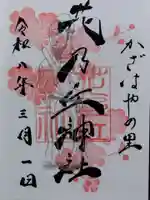 かざはやの里
花乃丘神社
令和八年三月一日